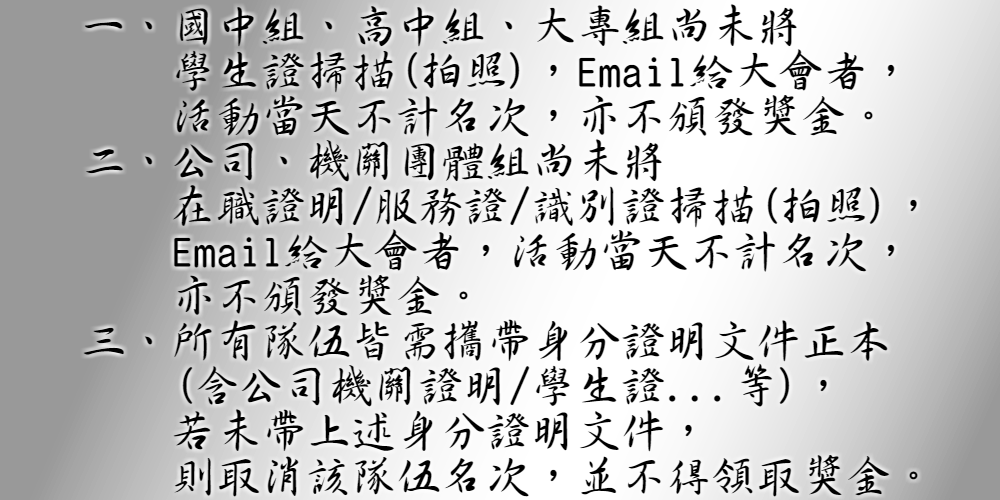 一、國中組、高中組、大專組尚未將
學生證掃描(拍照)，Email給大會者，
活動當天不計名次，亦不頒發獎金。
二、公司、機關團體組尚未將
在職證明/服務證/識別證掃描(拍照)，
Email給大會者，活動當天不計名次，
亦不頒發獎金。
三、所有隊伍皆需攜帶身分證明文件正本
(含公司機關證明/學生證...等)，
若未帶上述身分證明文件，
則取消該隊伍名次，並不得領取獎金。